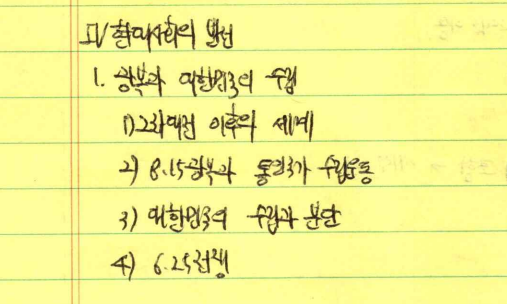 IV 현대사회의 발전
1. 광복과 대한민국의 수립
1) 2차대전 이후의 세계
2) 8.15광복과 통일국가 수립운동
3) 대한민국의 수립과 분단
4) 6.25전쟁